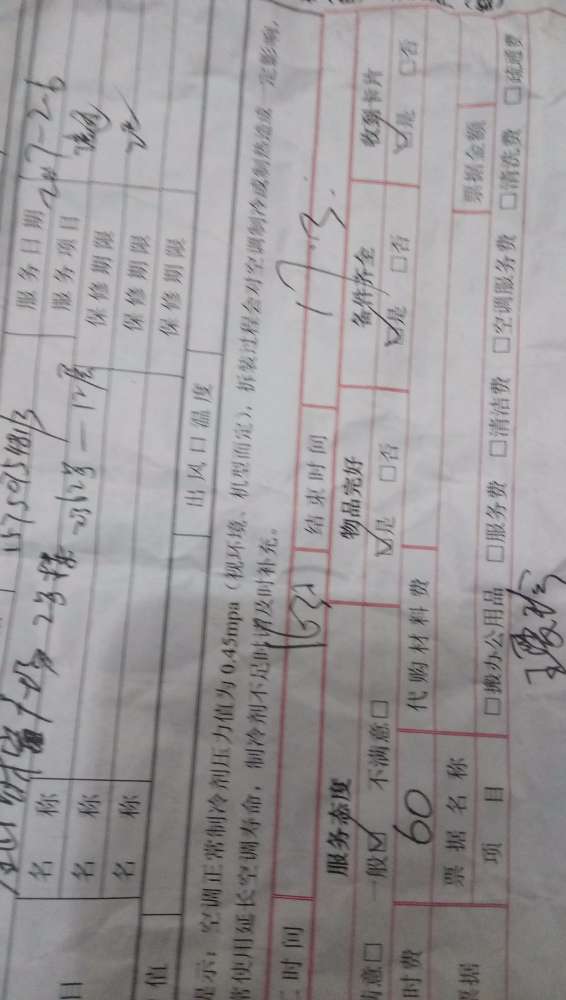 15759548113
服务日期 2017-2-6
2号楼
名 称 服务项目
名 称 262号-12层 保修期限
名 称 保修期限
保修期限
值 出风口温度
提示：空调正常制冷剂压力值为0.45mpa（视环境、机型而定），拆装过程会对空调制冷或制热造成一定影响，
常使用延长空调寿命，制冷剂不足时请及时补充。
时间 结束时间 17.3
服务态度 物品完好 备件齐全 收到卡片
满意□ 一般☑ 不满意□ ☑是 □否 ☑是 □否 ☑是 □否
时费 60 代购材料费
票据名称 票据金额
据 项 目 □搬办公用品 □服务费 □清洁费 □空调服务费 □清洗费 □疏通费